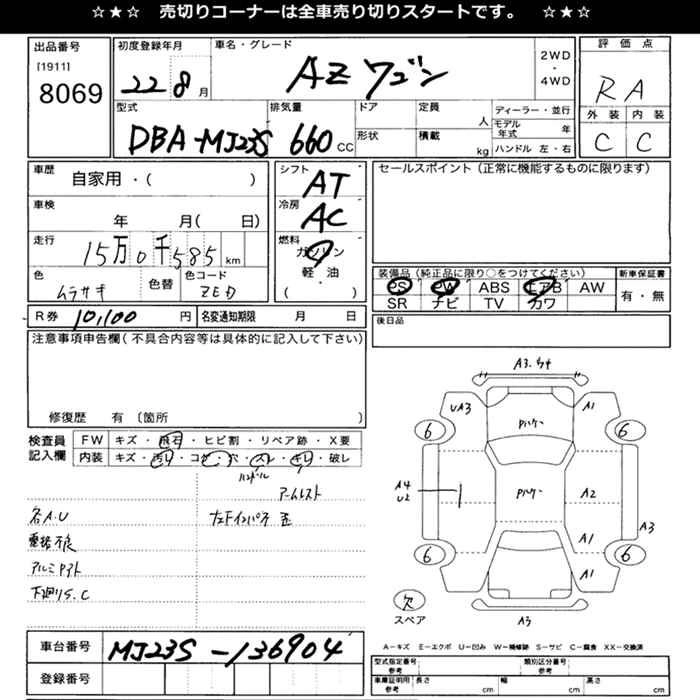 ☆★☆ 売切りコーナーは全車売り切りスタートです。 ☆★☆
出品番号 初度登録年月 車名・グレード 2WD・4WD 評価点
[1911]
8069
22 8 月 AZワゴン RA
外装 内装
C C
型式 排気量 ドア 定員 人 ディーラー・並行
モデル年式 年
DBA-MJ23S 660 CC 形状 積載 kg ハンドル 左・右
車歴 自家用・( ) シフト AT セールスポイント(正常に機能するものに限ります)
車検 年 月( 日) 冷房 AC
走行 15万0千585 km 燃料 ガソリン
軽・油
( )
色 ムラサキ 色替 色コード ZED
装備品(純正品に限り○をつけてください) 新車保証書
PS PW ABS エアB AW 有・無
SR ナビ TV カワ
R券 10,100 円 名変通知期限 月 日
後日品
注意事項申告欄(不具合内容等は具体的に記入して下さい)
修復歴 有 〔箇所
検査員記入欄 FW キズ・飛石・ヒビ割・リペア跡・X要
内装 キズ・汚レ・コゲ・穴・スレ・キレ・破レ
ハンドル
アームレスト
各A.U 左下インパネ 歪
電格不良
アルミ
下廻りS.C
A3.ワレ
UA3 A1
バルサー
6 6
A4
U2
A2
A1
A3
6 6
A1
欠
スペア
A3
A-キズ E-エクボ U-凹み W-補修跡 S-サビ C-腐食 XX-交換済
車台番号 MJ23S-136904
登録番号
型式指定番号 参考 類別区分番号 参考
車庫証明用 参考 長さ cm 幅 cm 高さ cm